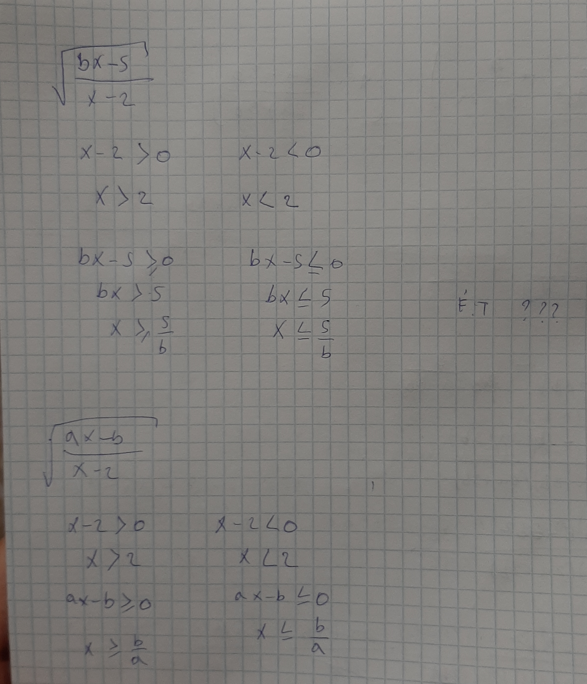 √((bx-5)/(x-2))
x-2 > 0    x-2 < 0
x > 2    x < 2
bx-5 ≥ 0    bx-5 ≤ 0
bx > 5    bx ≤ 5
x ≥ 5/b    x ≤ 5/b
É.T ???
√((ax-b)/(x-2))
x-2 > 0    x-2 < 0
x > 2    x < 2
ax-b ≥ 0    ax-b ≤ 0
x ≥ b/a    x ≤ b/a